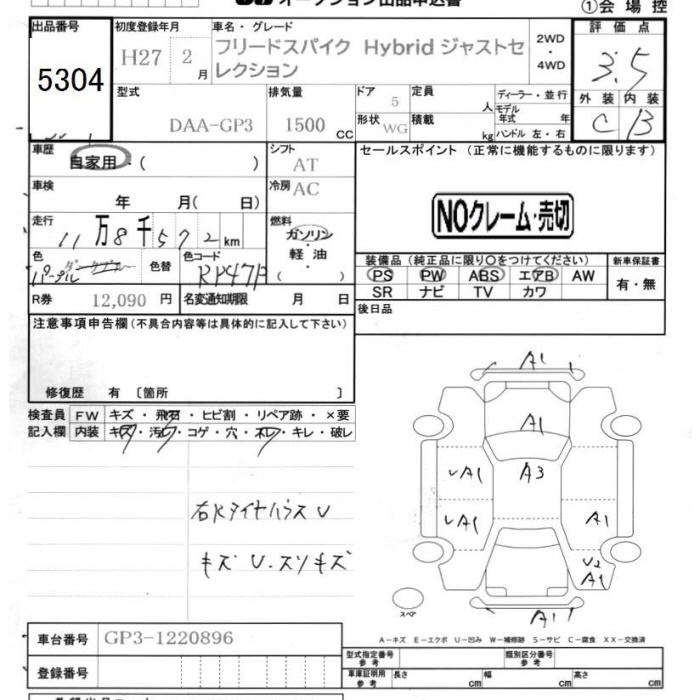 オークション出品申込書
①会場控
出品番号
5304
初度登録年月
H27 2月
車名・グレード
フリードスパイク Hybrid ジャストセレクション
2WD
・
4WD
評価点
3.5
外装 内装
C B
型式
DAA-GP3
排気量
1500 CC
ドア 5
形状 WG
定員 人
積載 kg
ディーラー・並行
モデル年式 年
ハンドル 左・右
車歴
自家用・( )
シフト AT
車検
年 月( 日)
冷房 AC
走行
11万8千572km
燃料
ガソリン
・
軽油
( )
色
パープル
色替
色コード
R券 12,090円
名変通知期限 月 日
セールスポイント(正常に機能するものに限ります)
NOクレーム・売切
装備品(純正品に限り〇をつけてください)
PS PW ABS エアB AW
SR ナビ TV カワ
新車保証書
有・無
後日品
注意事項申告欄(不具合内容等は具体的に記入して下さい)
修復歴 有 〔箇所 〕
検査員記入欄
FW キズ・飛石・ヒビ割・リペア跡・×要
内装 キズ・汚レ・コゲ・穴・ネレ・キレ・破レ
A1
A1
A3
UA1
UA1
A1
U2
A1
A1
スペア
右Rタイヤハウス U
キズ U・スリキズ
A-キズ E-エクボ U-凹み W-補修跡 S-サビ C-腐食 XX-交換済
車台番号 GP3-1220896
登録番号
型式指定番号 参考
類別区分番号 参考
車庫証明用 参考
長さ cm
幅 cm
高さ cm